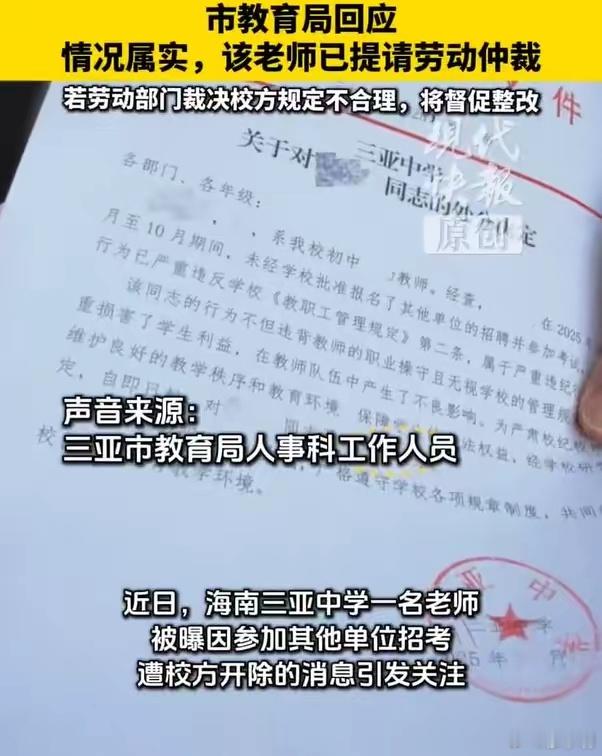 市教育局回应
情况属实，该老师已提请劳动仲裁
若劳动部门裁决校方规定不合理，将督促整改
件
现代
快报
原创
三亚中学
关于对
同志的处分决定
各部门、各年级：
系我校初中
教师。经查，
在2025年
月至10月期间，未经学校批准报名了其他单位的招聘并参加考试，
行为已严重违反学校《教职工管理规定》第二条，属于严重违纪
该同志的行为不但违背教师的职业操守且无视学校的管理规
重损害了学生利益，在教师队伍中产生了不良影响。为严肃校纪校
维护良好的教学秩序和教育环境
保障
法权益，经学校研
定，自即日
对
同
格遵守学校各项规章制度，共同
校
学环境。
声音来源：
三亚市教育局人事科工作人员
亚中
近日，海南三亚中学一名老师
被曝因参加其他单位招考
遭校方开除的消息引发关注